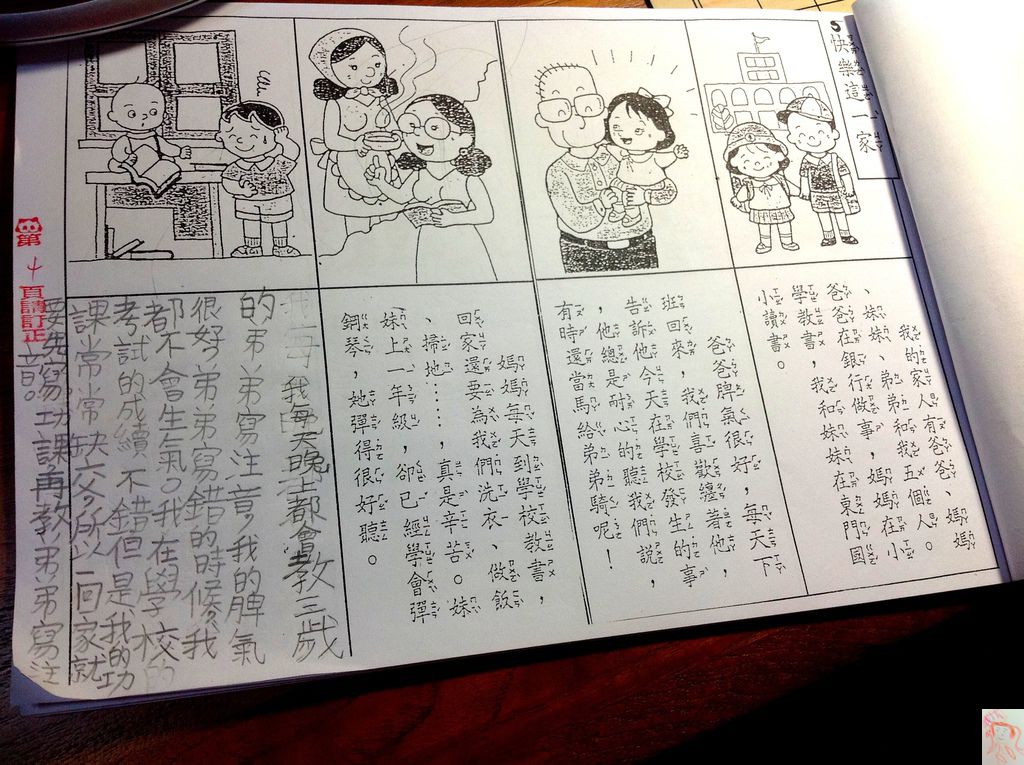 5 快樂這一家
我的家人有爸爸、媽媽
、妹妹、弟弟和我五個人。
爸爸在銀行做事，媽媽在小
學教書，我和妹妹在東門國
小讀書。
爸爸脾氣很好，每天下
班回來，我們喜歡纏著他，
告訴他今天在學校發生的事
，他總是耐心的聽我們說，
有時還當馬給弟弟騎呢！
媽媽每天到學校教書，
回家還要為我們洗衣、做飯
、掃地……，真是辛苦。妹
妹上一年級，卻已經學會彈
鋼琴，她彈得很好聽。
我每天晚上都會教三歲
的弟弟寫注音，我的脾氣
很好，弟弟寫錯的時候，我
都不會生氣。我在學校的
考試的成績不錯但是，我的功
課常常缺交，所以一回家就
要先寫功課再教弟弟寫注
音。
第4頁請訂正